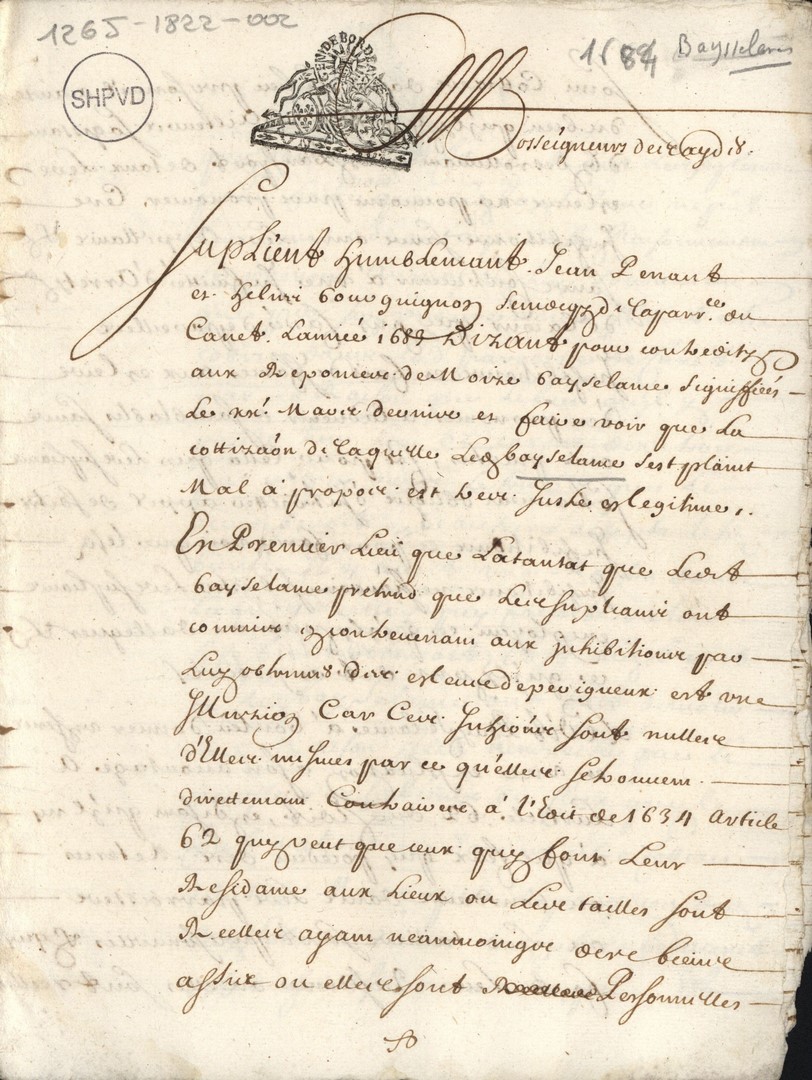 1265-1822-002
1684 Baysselans
SHPVD
GEN DE BORDEAUX
Mosseigneurs des aydes.
Suplient humblemant Jean Penant
et Helies bourguignon scindicqz de la parr.ce du
Canet Lannée 1683 Dizant pour contreditz
aux Reponces de Moize bayselance signiffiées
Le xx.e Mars dernier et faire voir que La
cottizaon de laquelle Ledt bayselance sest plaint
Mal a propos est tres juste et legitime,.
En Premier Lieu que Latantat que Ledt
bayselance pretend que Les suplians ont
commis contrevenant aux inhibitions par
Luy obtenues des esleus de perigueux est une
Illuzion Car Ces sont nulles
d'Elles mesmes par ce qu'elles se trouvent
directemant Contraires a l'Edit de 1634 Article
62 quy veut que ceux quy font Leur
Residance aux Lieux ou Les tailles sont
Reelles ayant neanmoingz des biens
assix ou elles sont Personnelles